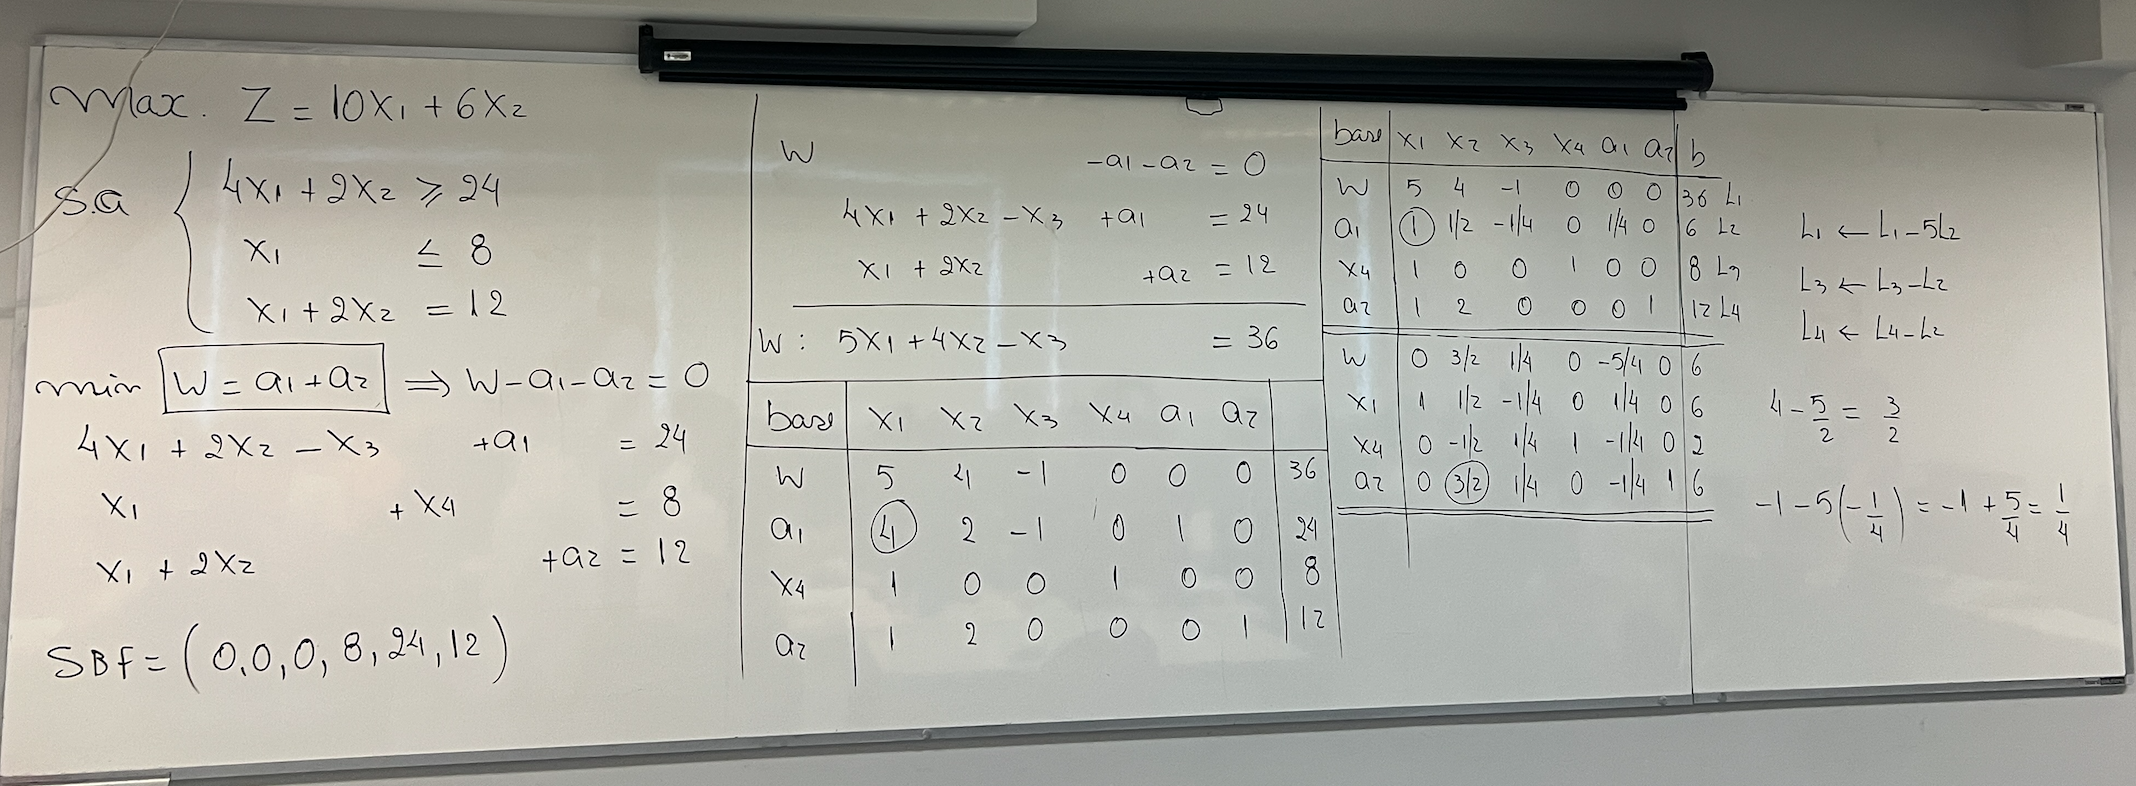 Max. Z = 10x₁ + 6x₂
s.a
4x₁ + 2x₂ ⩾ 24
x₁ ≤ 8
x₁ + 2x₂ = 12
min W = a₁ + a₂ ⇒ W - a₁ - a₂ = 0
4x₁ + 2x₂ - x₃ + a₁ = 24
x₁ + x₄ = 8
x₁ + 2x₂ + a₂ = 12
SBF = (0,0,0,8,24,12)
W - a₁ - a₂ = 0
4x₁ + 2x₂ - x₃ + a₁ = 24
x₁ + 2x₂ + a₂ = 12
W: 5x₁ + 4x₂ - x₃ = 36
base x₁ x₂ x₃ x₄ a₁ a₂
W 5 4 -1 0 0 0 36
a₁ 4 2 -1 0 1 0 24
x₄ 1 0 0 1 0 0 8
a₂ 1 2 0 0 0 1 12
base x₁ x₂ x₃ x₄ a₁ a₂ b
W 5 4 -1 0 0 0 36 L₁
a₁ 1 1/2 -1/4 0 1/4 0 6 L₂
x₄ 1 0 0 1 0 0 8 L₃
a₂ 1 2 0 0 0 1 12 L₄
W 0 3/2 1/4 0 -5/4 0 6
x₁ 1 1/2 -1/4 0 1/4 0 6
x₄ 0 -1/2 1/4 1 -1/4 0 2
a₂ 0 3/2 1/4 0 -1/4 1 6
L₁ ← L₁ - 5L₂
L₃ ← L₃ - L₂
L₄ ← L₄ - L₂
4 - 5/2 = 3/2
-1 - 5(-1/4) = -1 + 5/4 = 1/4